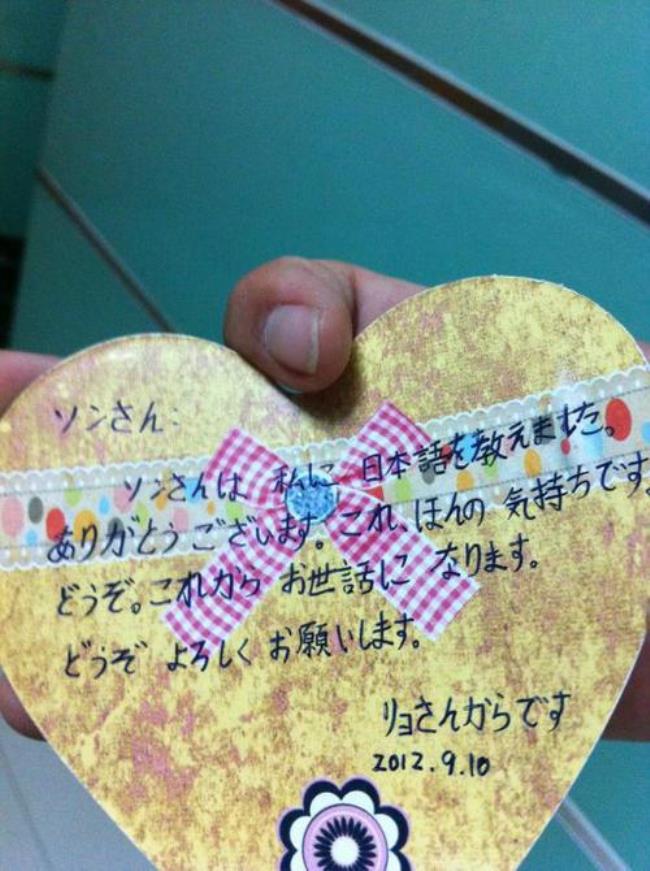 ソンさん:
ソンさんは 私に 日本語を教えました。
ありがとうございます。これ、ほんの 気持ちです。
どうぞ。これから お世話に なります。
どうぞ よろしく お願いします。
リョさんからです
2012.9.10